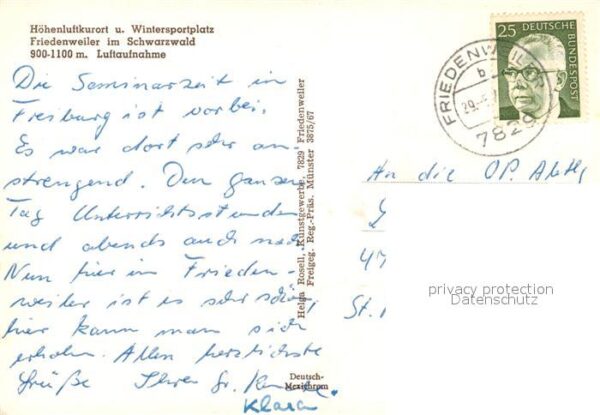 Höhenluftkurort u. Wintersportplatz
Friedenweiler im Schwarzwald
900-1100 m. Luftaufnahme
Die Seminarzeit in
Freiburg ist vorbei.
Es war dort sehr an-
strengend. Den ganzen
Tag Unterrichtsstunden
und abends auch noch.
Nun hier in Frieden-
weiler ist es sehr schön,
hier kann man sich
erholen. Allen herzlichste
Grüße Ihre Sr.
Klara
Helga Rosell, Kunstgewerbe, 7829 Friedenweiler
Freigeg. Reg.-Präs. Münster 3875/67
Deutsch-
Mexichrom
25 DEUTSCHE
BUNDESPOST
FRIEDENWEILER
b
29.
7829
An die OP. Abtlg
47
St.
privacy protection
Datenschutz